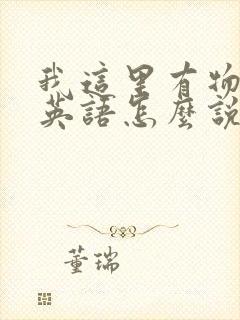 我這里有物
英語怎麼說
董瑞